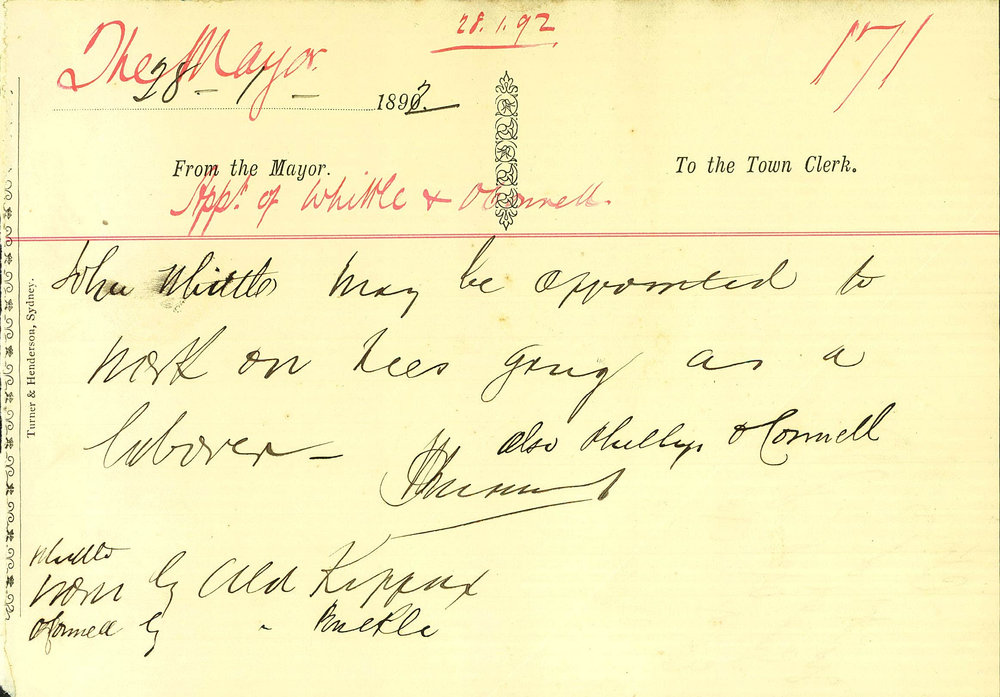 28.1.92
171
The Mayor.
28 – 1 – 1892
From the Mayor.
To the Town Clerk.
Appt. of Whittle & O'Connell.
John Whittle May be appointed to
work on Lees gang as a
laborer –
also Phillip O'Connell
Whittle
nom by Ald Kippax
O'Connell by " Buckle
Turner & Henderson, Sydney.